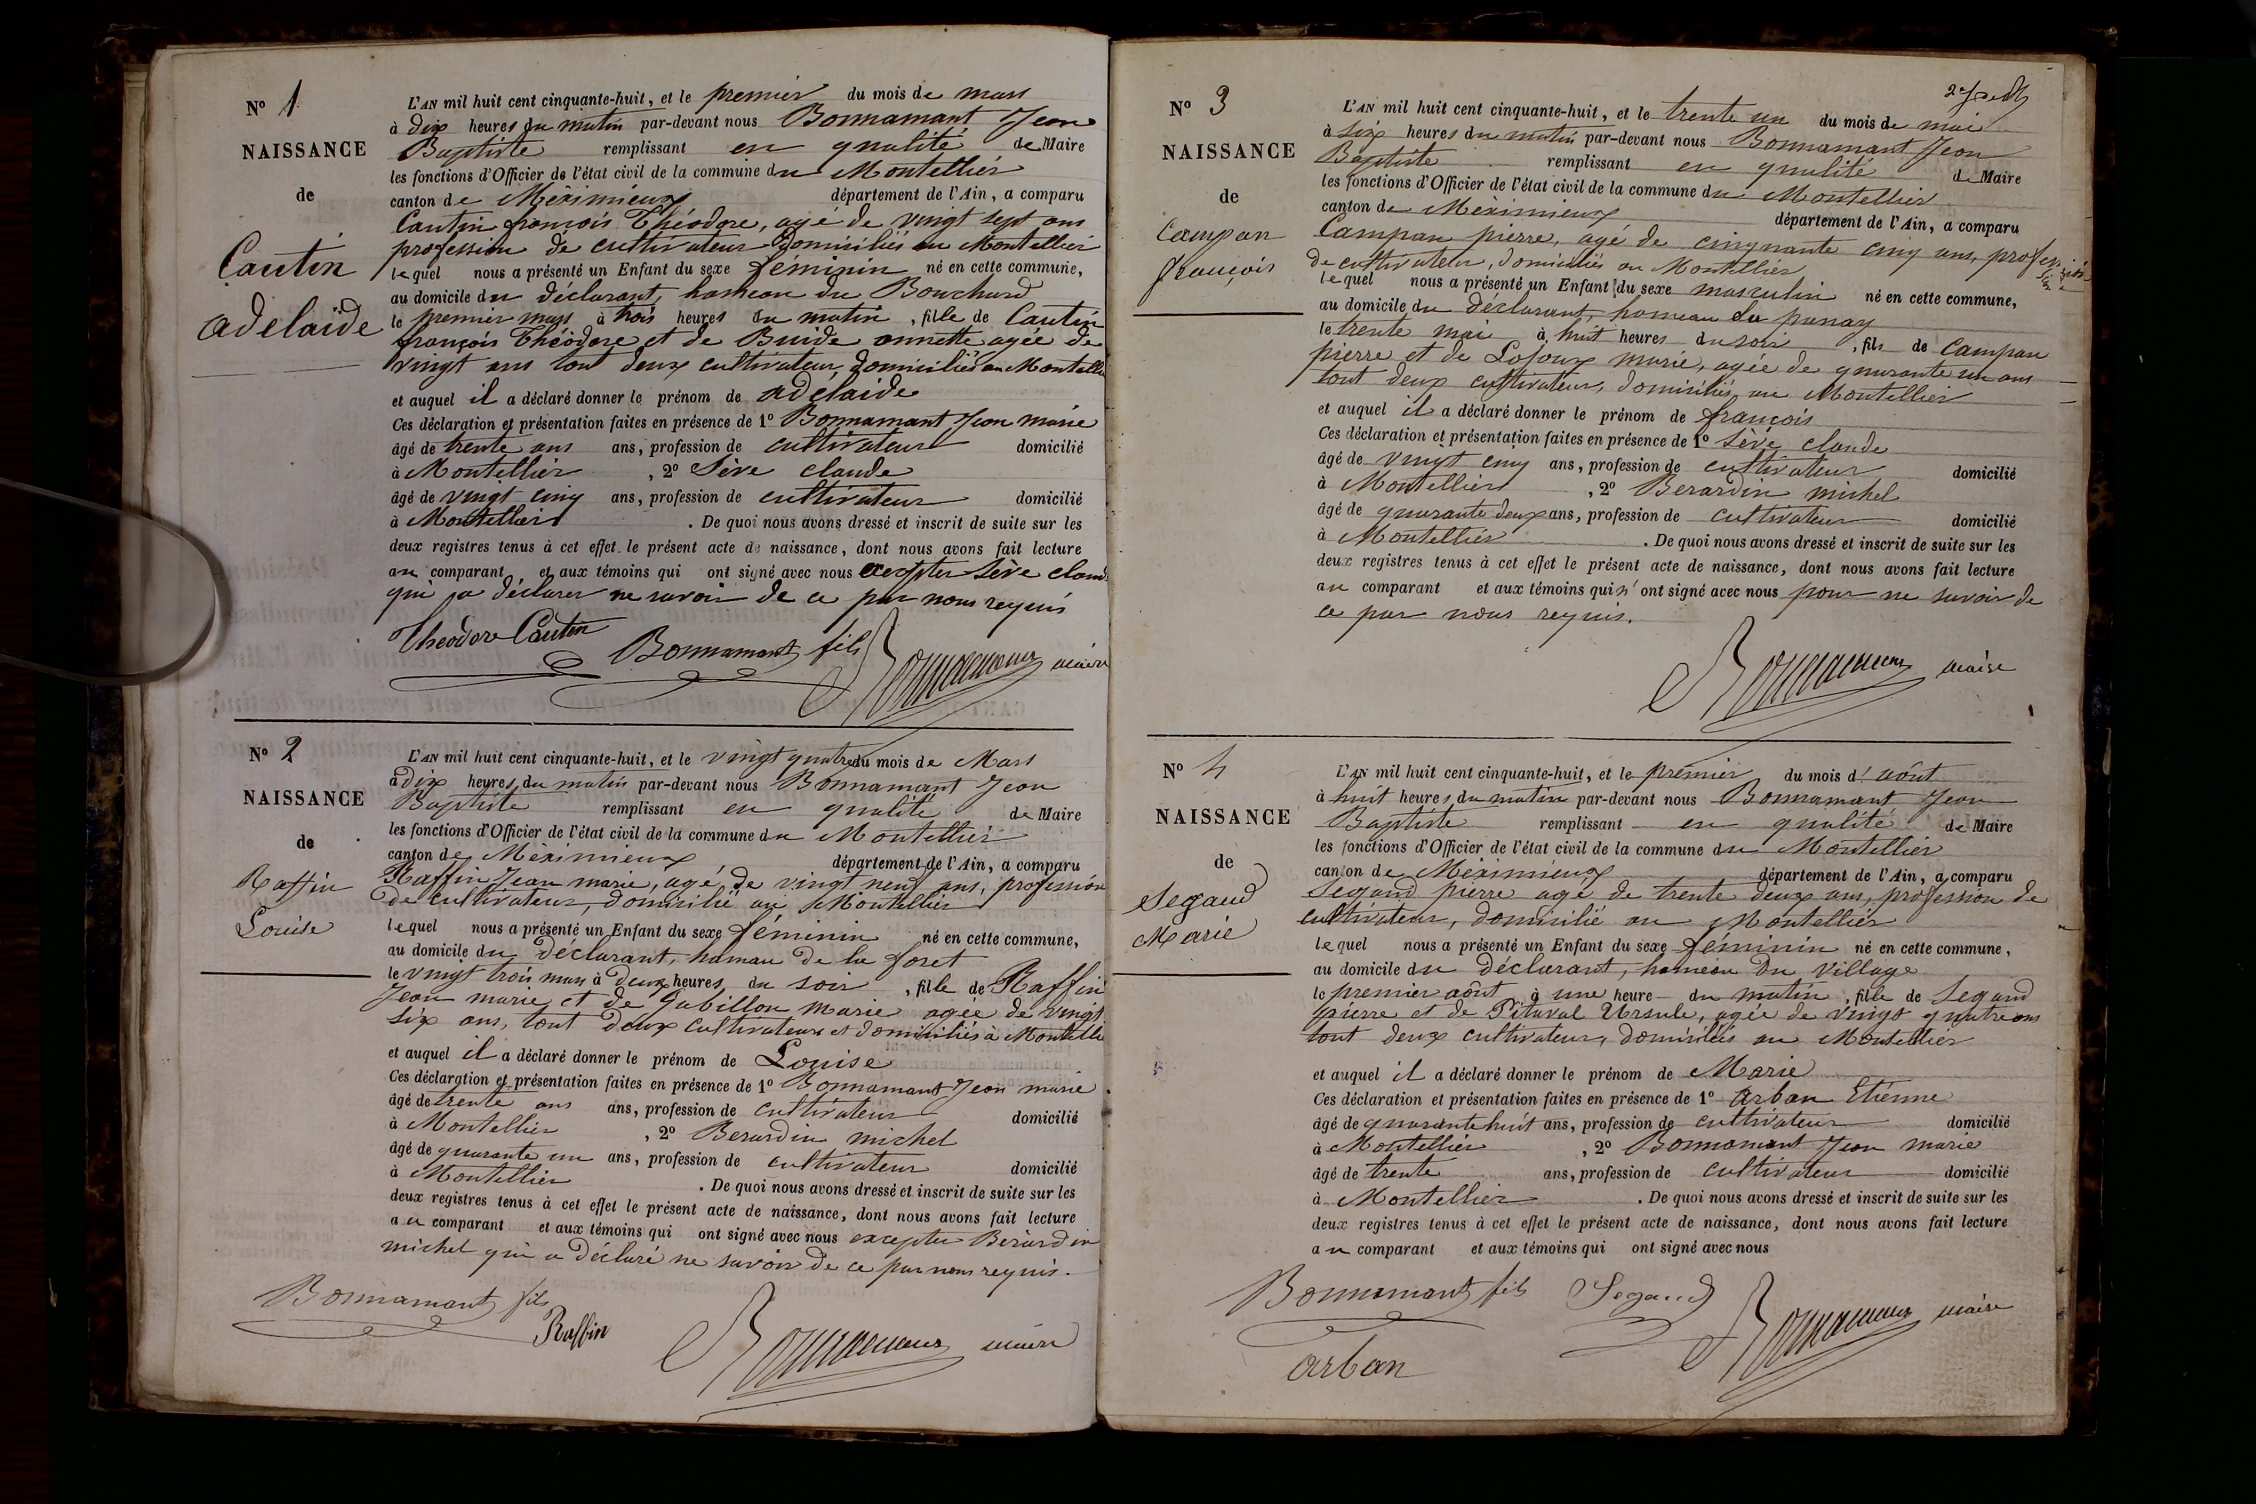 N° 1
NAISSANCE
de
Cantin
adelaide
L'AN mil huit cent cinquante-huit, et le premier du mois de mars
à dix heures du matin par-devant nous Bonnamant Jean
Baptiste remplissant en qualité de Maire
les fonctions d'Officier de l'état civil de la commune du Montellier
canton de Méximieux département de l'Ain, a comparu
Cantin françois Théodore, agé de vingt sept ans
profession de cultivateur domiciliés au Montellier
lequel nous a présenté un Enfant du sexe féminin né en cette commune,
au domicile du déclarant, hameau du Bouchard
le premier mars à trois heures du matin, fille de Cantin
françois Théodore et de Buide annette agée de
vingt ans tout deux cultivateur, domiciliés au Montelli
et auquel il a déclaré donner le prénom de adélaide
Ces déclaration et présentation faites en présence de 1° Bonnamant Jean marie
âgé de trente ans ans, profession de cultivateur domicilié
à Montellier, 2° Sève claude
âgé de vingt cinq ans, profession de cultivateur domicilié
à Montellier. De quoi nous avons dressé et inscrit de suite sur les
deux registres tenus à cet effet le présent acte de naissance, dont nous avons fait lecture
au comparant et aux témoins qui ont signé avec nous excepter Sève claud
qui a déclarer ne savoir de ce par nous requis
Théodore Cantin Bonnamant fils Bonnamant maire
N° 2
NAISSANCE
de
Raffin
Louise
L'AN mil huit cent cinquante-huit, et le vingt quatre du mois de Mars
à dix heures du matin par-devant nous Bonnamant Jean
Baptiste remplissant en qualité de Maire
les fonctions d'Officier de l'état civil de la commune du Montellier
canton de Méximieux département de l'Ain, a comparu
Raffin Jean marie, agé de vingt neuf ans, profession
de cultivateur, domicilié au Montellier
lequel nous a présenté un Enfant du sexe féminin né en cette commune,
au domicile du déclarant, hamau de la foret
le vingt trois mars à deux heures du soir, fille de Raffin
Jean marie et de Gabillon marie agée de vingt
six ans, tout deux cultivateurs et domiciliés à Montelli
et auquel il a déclaré donner le prénom de Louise
Ces déclaration et présentation faites en présence de 1° Bonnamant Jean marie
âgé de trente ans ans, profession de cultivateur domicilié
à Montellier, 2° Berardin michel
âgé de quarante un ans, profession de cultivateur domicilié
à Montellier. De quoi nous avons dressé et inscrit de suite sur les
deux registres tenus à cet effet le présent acte de naissance, dont nous avons fait lecture
au comparant et aux témoins qui ont signé avec nous excepter Berardin
michel qui a déclaré ne savoir de ce par nous requis.
Bonnamant fils
Raffin Bonnamant maire
N° 3
NAISSANCE
de
Campan
françois
L'AN mil huit cent cinquante-huit, et le trente un du mois de mai
à six heures du matin par-devant nous Bonnamant Jean
Baptiste remplissant en qualité de Maire
les fonctions d'Officier de l'état civil de la commune du Montellier
canton de Méximieux département de l'Ain, a comparu
Campan pierre, agé de cinquante cinq ans, profession
de cultivateur, domiciliés au Montellier
lequel nous a présenté un Enfant du sexe masculin né en cette commune,
au domicile du déclarant, hameau du
le trente mai à huit heures du soir, fils de Campan
pierre et de marie, agée de quarante un ans
tout deux cultivateur, domiciliés au Montellier
et auquel il a déclaré donner le prénom de françois
Ces déclaration et présentation faites en présence de 1° Sève claude
âgé de vingt cinq ans, profession de cultivateur domicilié
à Montellier, 2° Berardin michel
âgé de quarante deux ans, profession de cultivateur domicilié
à Montellier. De quoi nous avons dressé et inscrit de suite sur les
deux registres tenus à cet effet le présent acte de naissance, dont nous avons fait lecture
au comparant et aux témoins qui n'ont signé avec nous pour ne savoir de
ce par nous requis.
Bonnamant maire
N° 4
NAISSANCE
de
Segaud
Marie
L'AN mil huit cent cinquante-huit, et le premier du mois d'août
à huit heures du matin par-devant nous Bonnamant Jean
Baptiste remplissant en qualité de Maire
les fonctions d'Officier de l'état civil de la commune du Montellier
canton de Méximieux département de l'Ain, a comparu
Segaud pierre agé de trente deux ans, profession de
cultivateur, domicilié au Montellier
lequel nous a présenté un Enfant du sexe féminin né en cette commune,
au domicile du déclarant, hameau du village
le premier août à une heure du matin, fille de Segaud
pierre et de Pitaval Ursule, agée de vingt quatre ans
tout deux cultivateur, domiciliés au Montellier
et auquel il a déclaré donner le prénom de Marie
Ces déclaration et présentation faites en présence de 1° Arban Etienne
âgé de quarante huit ans, profession de cultivateur domicilié
à Montellier, 2° Bonnamant Jean marie
âgé de trente ans, profession de cultivateur domicilié
à Montellier. De quoi nous avons dressé et inscrit de suite sur les
deux registres tenus à cet effet le présent acte de naissance, dont nous avons fait lecture
au comparant et aux témoins qui ont signé avec nous
Bonnamant fils Segaud Bonnamant maire
arban